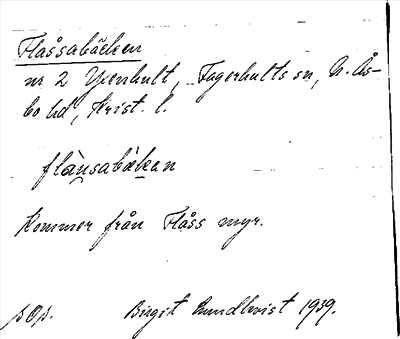 Flåssabäcken
nr 2 Yxenhult, Fagerhults sn, N. Ås-
bo hd, Krist. l.
flånsabäkan
Kommer från Flåss myr.
Birgit Lundkvist 1939.